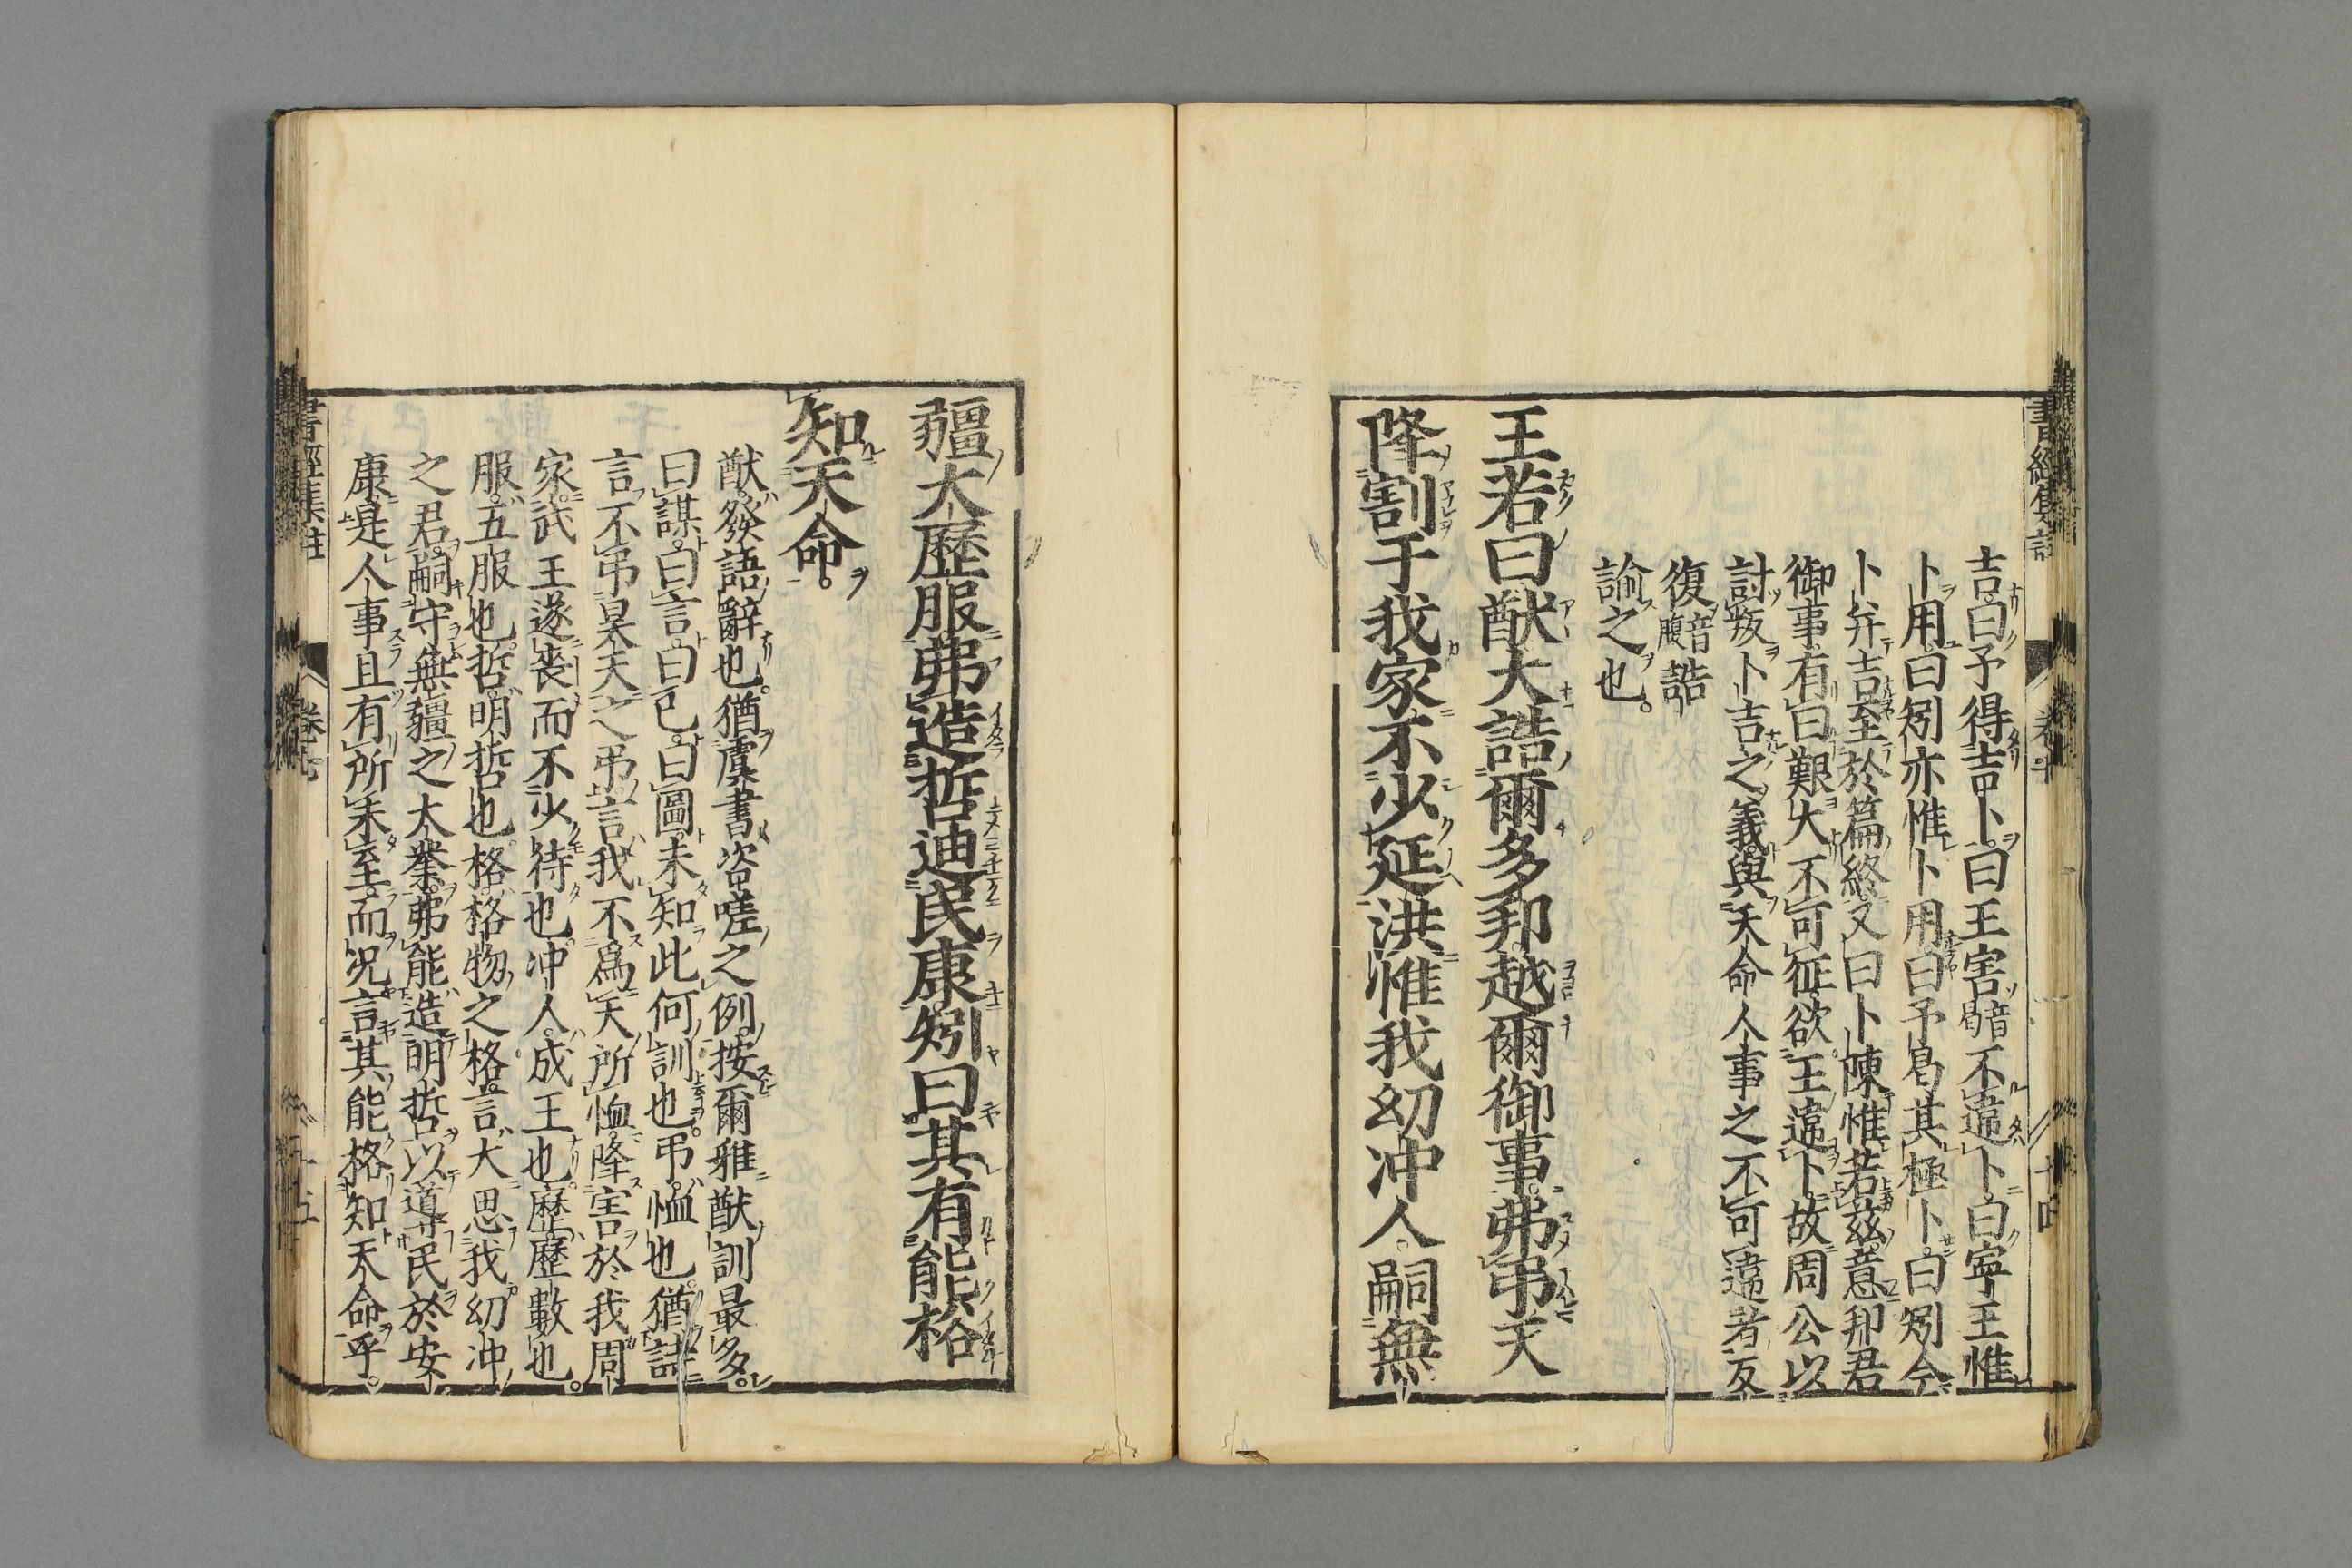 吉曰予得吉卜曰王害音曷不違卜曰寧王惟
卜用曰矧亦惟卜用曰予曷其極卜曰矧今
卜并吉至於篇終又曰卜陳惟若茲意邦君
御事有曰艱大不可征欲王違卜故周公以
討叛卜吉之義與天命人事之不可違者反
復音腹誥
諭之也
王若曰猷大誥爾多邦越爾御事弗弔天
降割于我家不少延洪惟我幼冲人嗣無
疆大歷服弗造哲迪民康矧曰其有能格
知天命
猷發語辭也猶虞書咨嗟之例按爾雅猷訓最多
曰謀曰言曰已曰圖未知此何訓也弔恤也猶詩
言不弔昊天之弔言我不爲天所恤降害於我周
家武王遂喪而不少待也冲人成王也歷歷數也
服五服也哲明哲也格格物之格言大思我幼冲
之君嗣守無疆之大業弗能造明哲以導民於安
康是人事且有所未至而況言其能格知天命乎